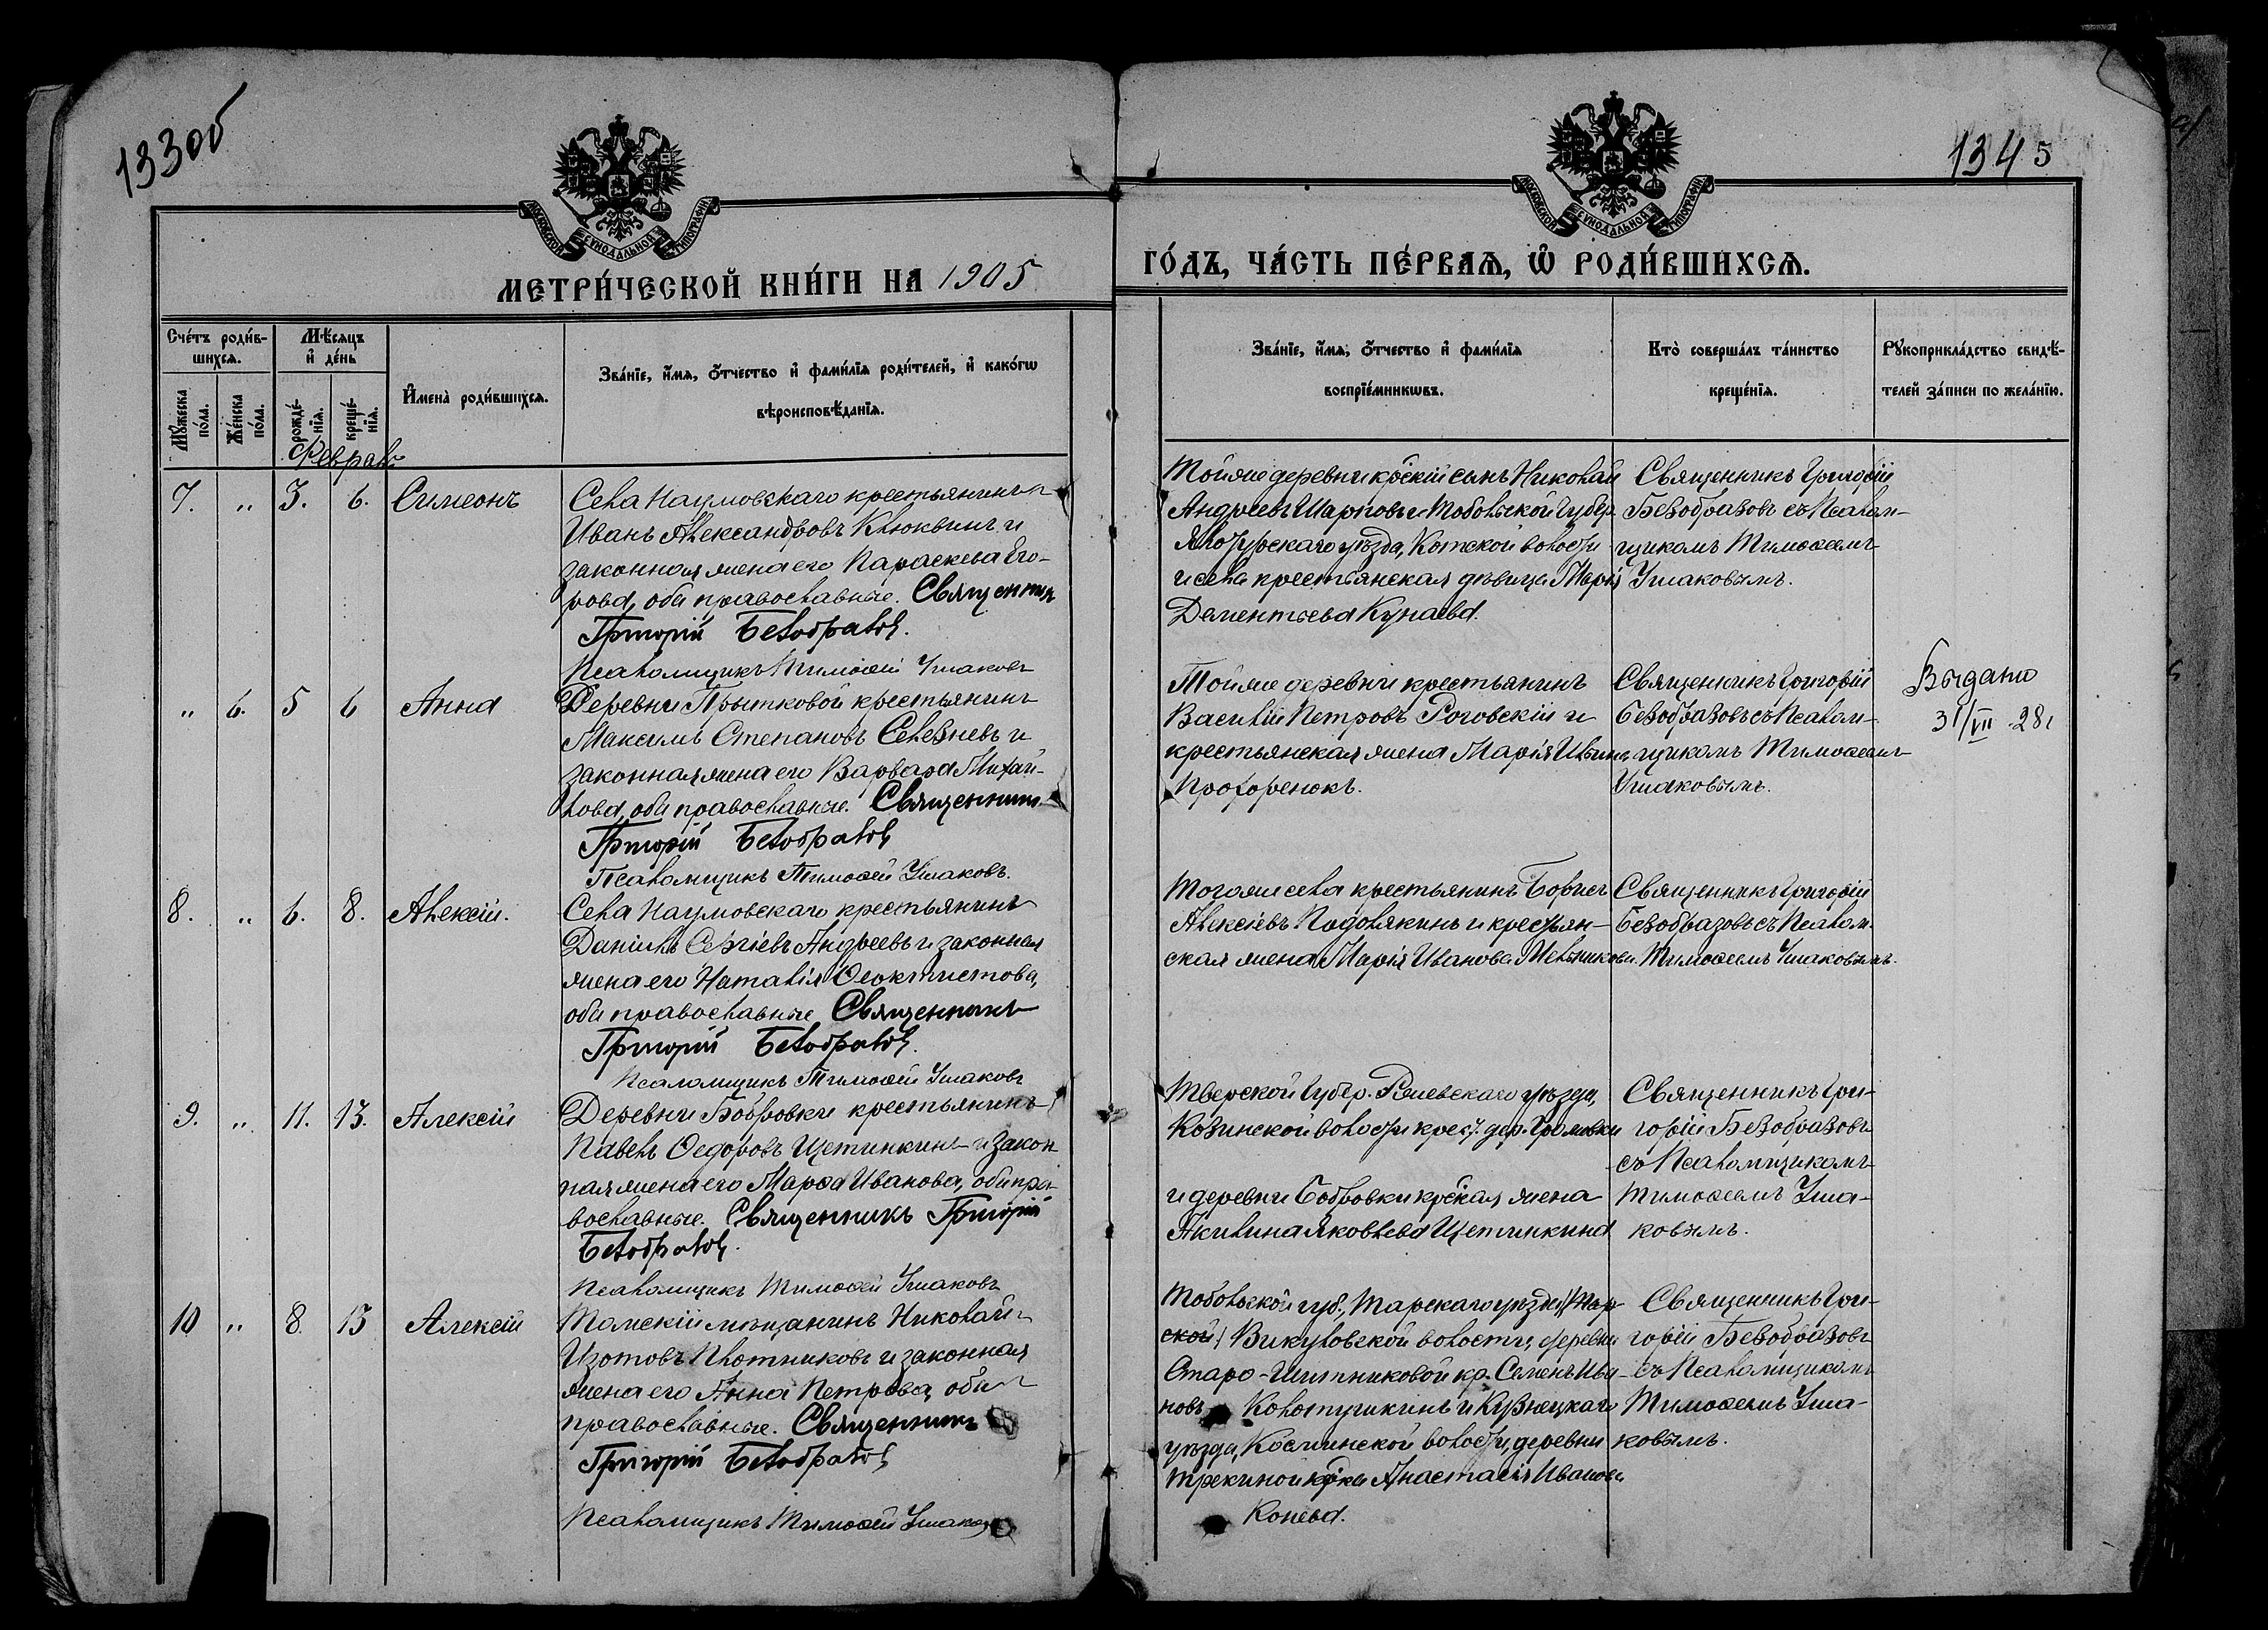 133об
134 5
МОСКОВСКОЙ СѴНОДАЛЬНОЙ ТИПОГРАФІИ
МОСКОВСКОЙ СѴНОДАЛЬНОЙ ТИПОГРАФІИ
МЕТРИ́ЧЕСКОЙ КНИ́ГИ НА 1905
ГО́ДЪ, ЧА́СТЬ ПЕ́РВАѦ, Ѽ РОДИ́ВШИХСѦ.
Сче́тъ роди́в-
шихсѧ.
Мꙋ́жеска
по́ла.
Же́нска
по́ла.
Мѣ́сѧцъ
и҆ де́нь
рожде́-
нїѧ.
креще́-
нїѧ.
И҆мена̀ роди́вшихсѧ.
Зва́нїе, и҆́мѧ, ѻ҆́тчество и҆ фами́лїѧ роди́телей, и҆ како́гѡ
вѣроисповѣ́данїѧ.
Зва́нїе, и҆́мѧ, ѻ҆́тчество и҆ фами́лїѧ
воспрїе́мникѡвъ.
Кто̀ соверша́лъ та́инство
креще́нїѧ.
Рꙋкоприкла́дство свидѣ́-
телей за́писи по жела́нїю.
Февраль
7. „ 3. 6. Симеонъ
Села Наумовскаго крестьянинъ
Иванъ Александровъ Клюквинъ и
законная жена его Параскева Его-
рова, оба православные. Священникъ
Григорій Безобразовъ.
Псаломщикъ Тимоѳей Ушаковъ
Тойже деревни кр̃скій сынъ Николай
Андреевъ Шарповъ и Тобольской Губер.
Ялоторскаго уѣзда, Котской волости
и села крестьянская дѣвица Марія
Дементьева Кунаева.
Священникъ Григорій
Безобразовъ съ Псалом-
щикомъ Тимоѳеемъ
Ушаковымъ.
„ 6. 5 6 Анна
Деревни Прытковой крестьянинъ
Максимъ Степановъ Селезневъ и
законная жена его Варвара Михай-
лова, оба православные. Священникъ
Григорій Безобразовъ
Псаломщикъ Тимоѳей Ушаковъ.
Тойже деревни крестьянинъ
Василій Петровъ Роговскій и
крестьянская жена Марія Иванова
Прохоренокъ.
Священникъ Григорій
Безобразовъ съ Псалом-
щикомъ Тимоѳеемъ
Ушаковымъ.
Выдано
31/VII 28г
8. „ 6. 8. Алексій.
Села Наумовскаго крестьянинъ
Даніилъ Сергіевъ Андреевъ и законная
жена его Наталія Ѳеоктистова,
оба православные Священникъ
Григорій Безобразовъ.
Псаломщикъ Тимоѳей Ушаковъ
Тогоже села крестьянинъ Борисъ
Алексіевъ Подолякинъ и крестьян-
ская жена Марія Иванова Мельникова.
Священникъ Григорій
Безобразовъ съ Псалом.
Тимоѳеемъ Ушаковымъ.
9. „ 11. 13. Алексій
Деревни Бобровки крестьянинъ
Павелъ Ѳедоровъ Щетинкинъ и закон
ная жена его Марѳа Иванова, оба пра-
вославные. Священникъ Григорій
Безобразовъ.
Псаломщикъ Тимоѳей Ушаковъ
Тверской Губер. Ржевскаго уѣзда,
Козинской волости крест. дер. Громовки
и деревни Бобровки кр̃ская жена
Акилина Яковлева Щетинкина
Священникъ Гри-
горій Безобразовъ
съ Псаломщикомъ
Тимоѳеемъ Уша-
ковымъ.
10 „ 8. 13 Алексій
Томскій мѣщанинъ Николай
Изотовъ Плотниковъ и законная
жена его Анна Петрова, оба
православные. Священникъ
Григорій Безобразовъ
Псаломщикъ Тимоѳей Ушаковъ
Тобольской губ., Тарскаго уѣзда, (Тар-
ской) Викуловской волости, деревни
Старо-Шитниковой кр. Семенъ Ива-
новъ Колотушкинъ и Кузнецкаго
уѣзда, Косминской волости, деревни
Трекиной кр̃ка Анастасія Иванова
Конева.
Священникъ Гри-
горій Безобразовъ
съ Псаломщикомъ
Тимоѳеемъ Уша-
ковымъ.